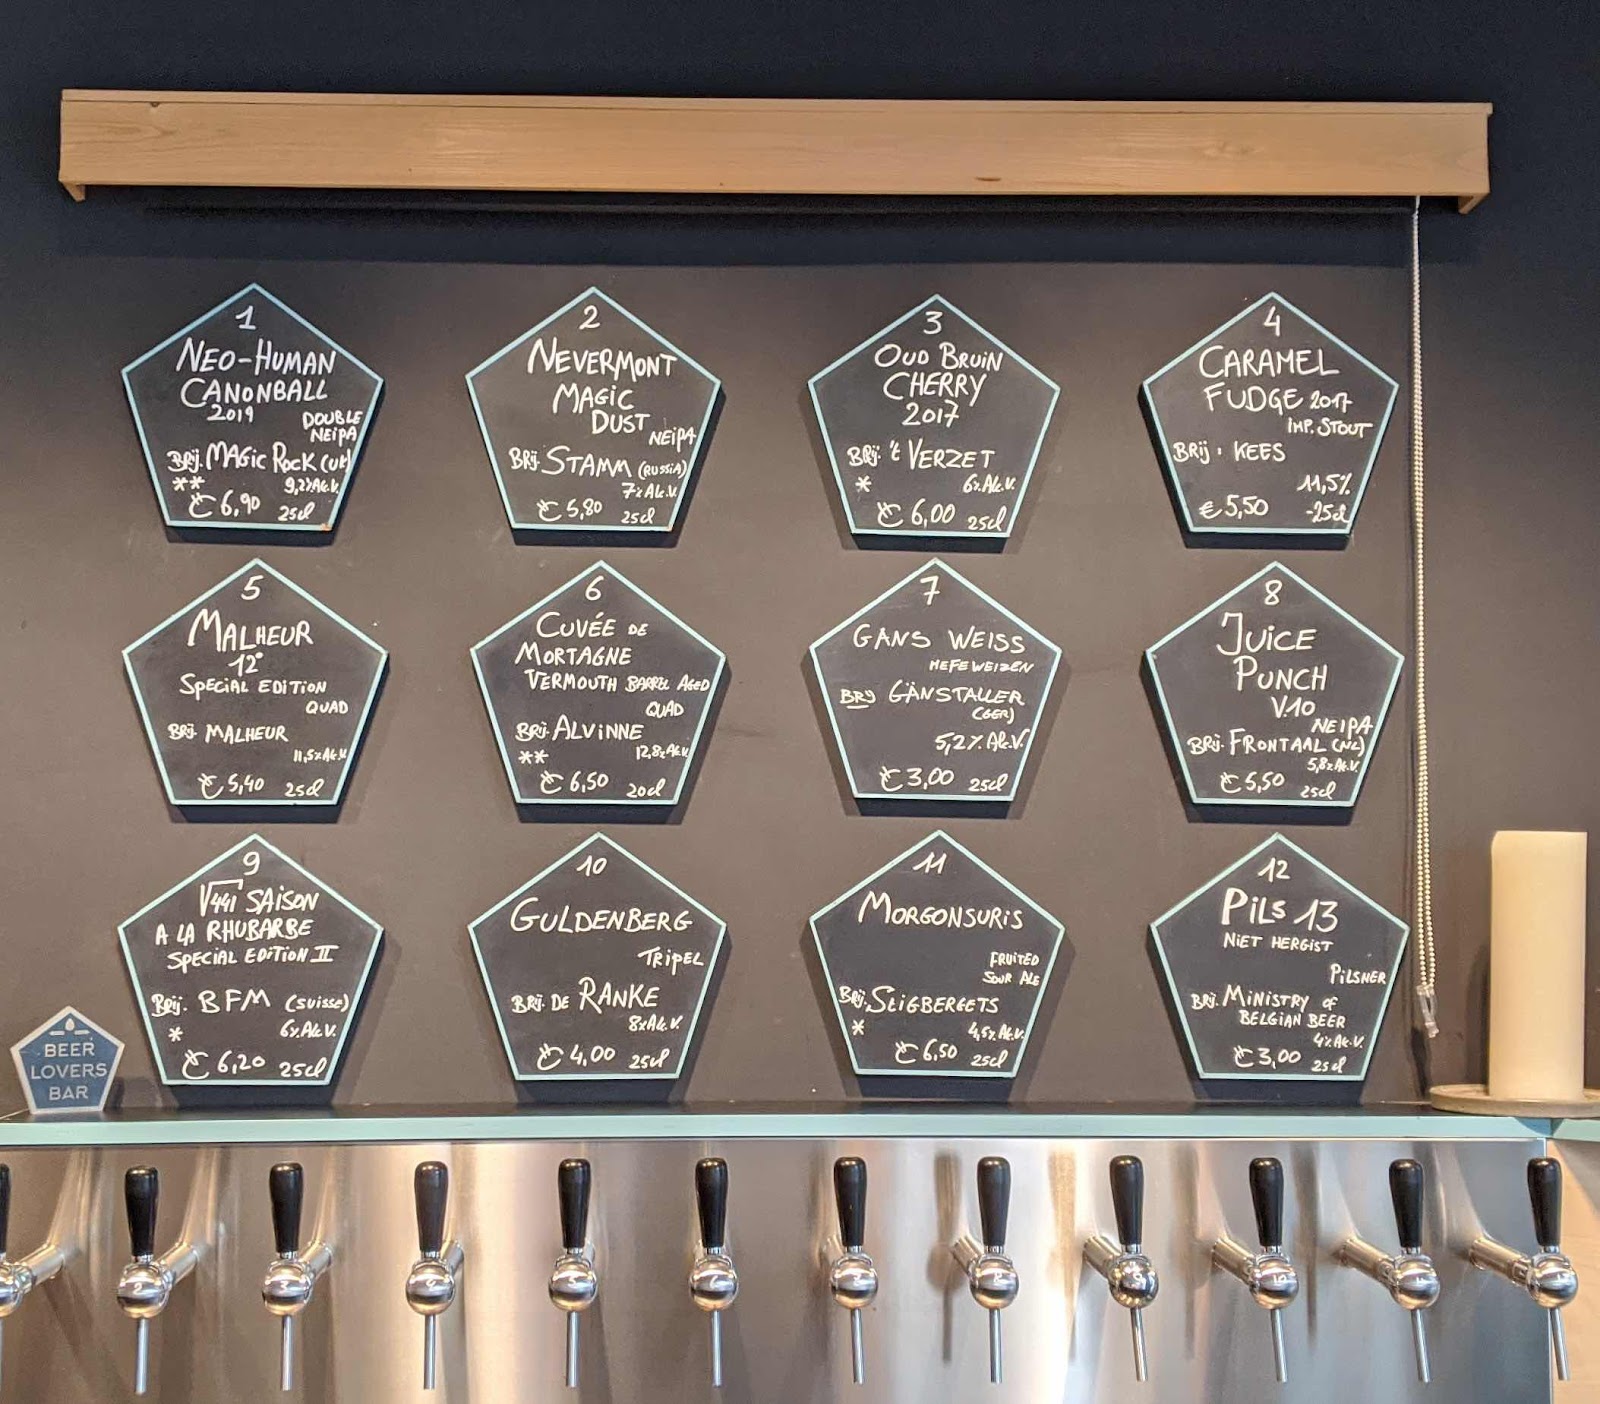 1
NEO-HUMAN
CANONBALL
2019
DOUBLE
NEIPA
BRIJ. MAGIC ROCK (UK)
** 9,2%ALC.V.
€ 6,90 25cl
2
NEVERMONT
MAGIC
DUST
NEIPA
BRIJ. STAMM (RUSSIA)
7%ALC.V.
€ 5,80 25cl
3
OUD BRUIN
CHERRY
2017
BRIJ. 't VERZET
* 6%ALC.V.
€ 6,00 25cl
4
CARAMEL
FUDGE 2017
IMP. STOUT
BRIJ. KEES
11,5%
€ 5,50 -25cl
5
MALHEUR
12°
SPECIAL EDITION
QUAD
BRIJ. MALHEUR
11,5%ALC.V.
€ 5,40 25cl
6
CUVÉE DE
MORTAGNE
VERMOUTH BARREL AGED
QUAD
BRIJ. ALVINNE
** 12,8%ALC.V.
€ 6,50 20cl
7
GÄNS WEISS
HEFEWEIZEN
BRIJ GÄNSTALLER
(GER)
5,2% ALC.V.
€ 3,00 25cl
8
JUICE
PUNCH
V.10
NEIPA
BRIJ. FRONTAAL (NL)
5,8%ALC.V.
€ 5,50 25cl
9
√441 SAISON
A LA RHUBARBE
SPECIAL EDITION II
BRIJ. BFM (SUISSE)
* 6%ALC.V.
€ 6,20 25cl
10
GULDENBERG
TRIPEL
BRIJ. DE RANKE
8%ALC.V.
€ 4,00 25cl
11
MORGONSURIS
FRUITED
SOUR ALE
BRIJ. STIGBERGETS
* 4,5%ALC.V.
€ 6,50 25cl
12
PILS 13
NIET HERGIST
PILSNER
BRIJ. MINISTRY OF
BELGIAN BEER
4%ALC.V.
€ 3,00 25cl
BEER
LOVERS
BAR
2 3 4 5 6 7 8 9 10 11 12